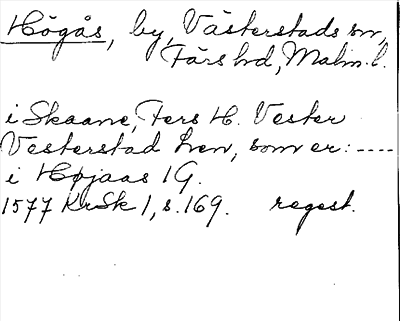 Högås, by, Västerstads sn,
Färs hd, Malm. l.
i Skaane, Fers H. Vester
Vesterstad Len, som er: ----
i Højaas 1 G.
1577 KrSk 1, s. 169. regest.